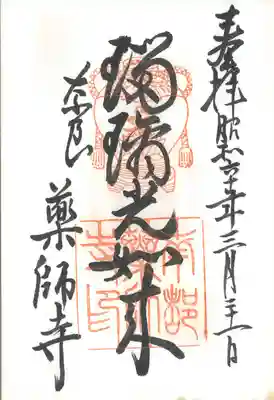 奉拝 昭和六十年三月三十一日
瑠璃光如来
奈良
薬師寺